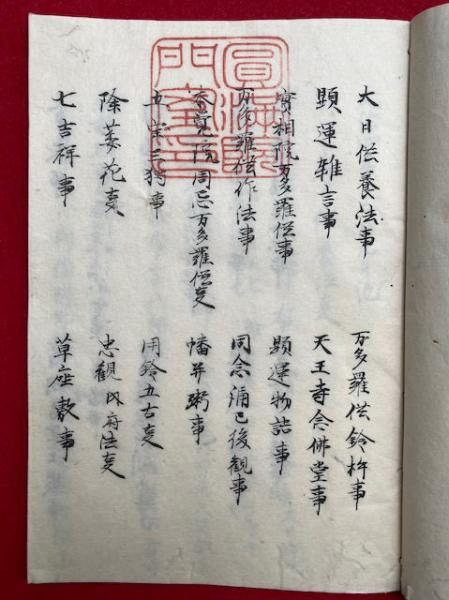 圓滿院
門室印
大日供養法事 万多羅供鈴杵事
顕運雑言事 天王寺念佛堂事
實相院万多羅供事 顕運物語事
万多羅供作法事 同念誦已後観事
院周忌万多羅供叓 幡并粥事
五 三 事 用鈴五古叓
除萎花叓 忠観内府法叓
七吉祥事 草座敷事